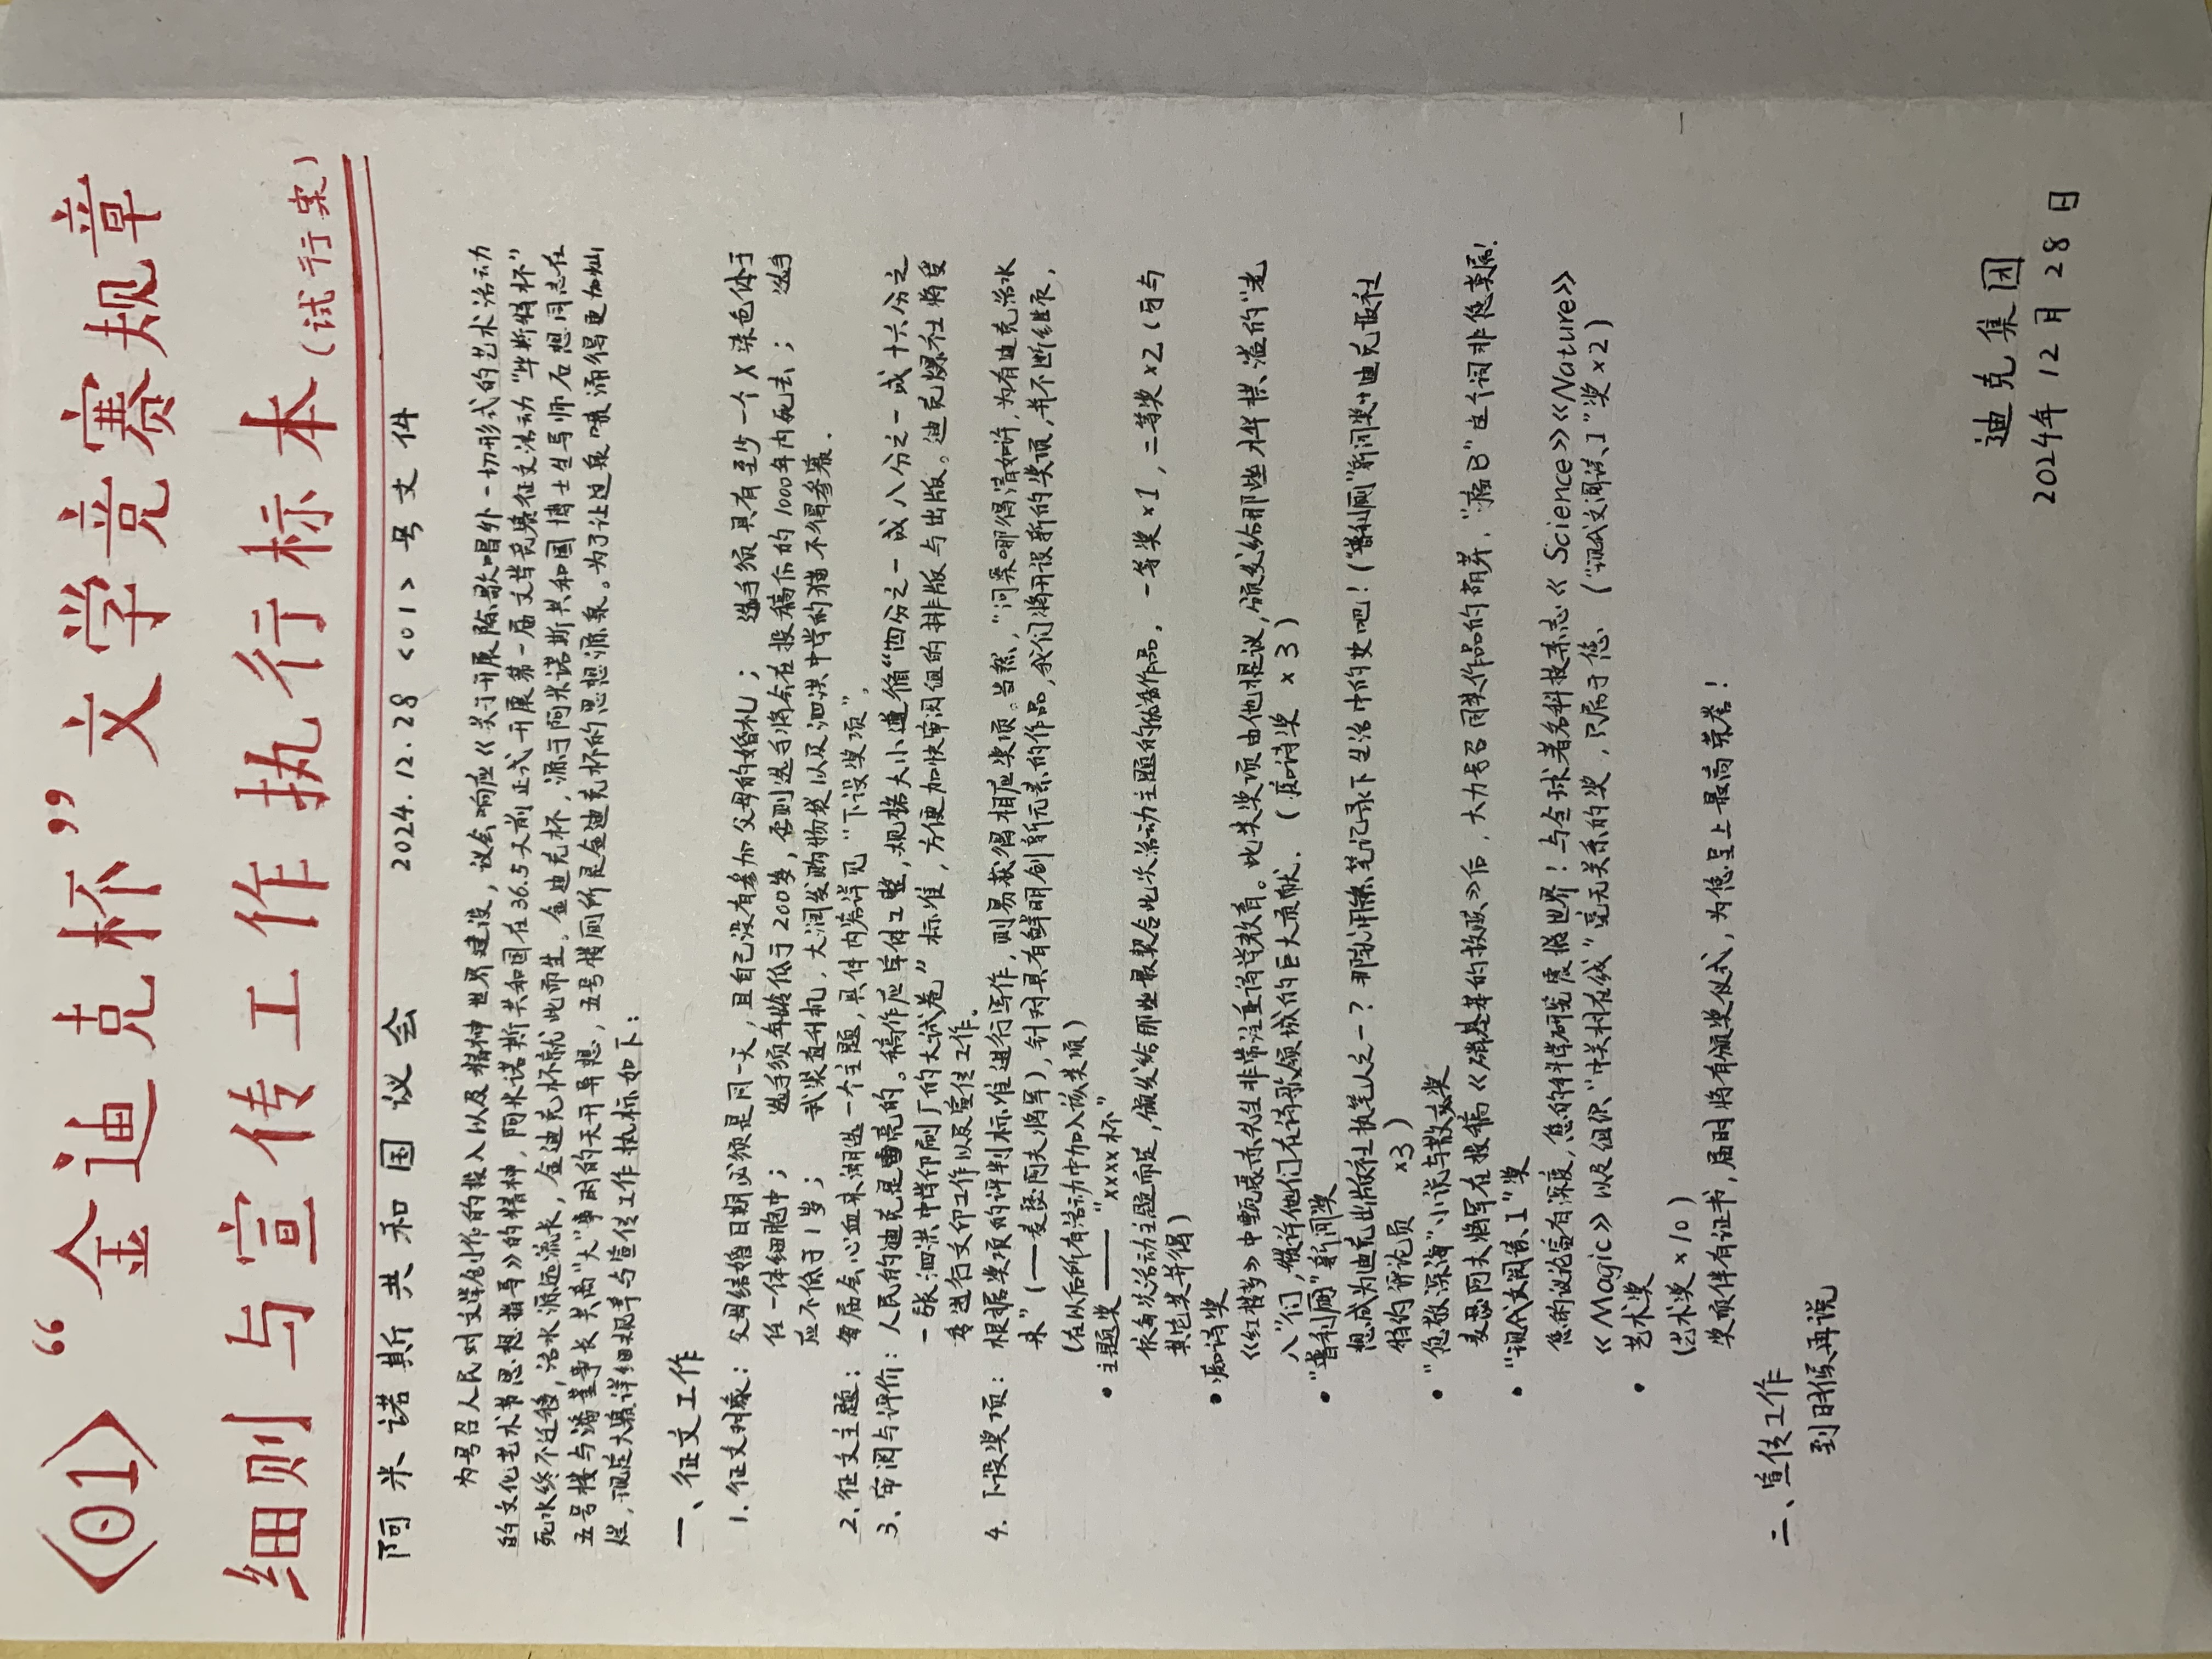 〈01〉“金迪克杯”文学竞赛规章
细则与宣传工作执行标本(试行案)
阿米诺斯共和国议会 2024.12.28 <01> 号文件
为号召人民对文学创作的投入以及精神世界建设，议会响应《关于开展除歌唱外一切形式的艺术活动
的文化艺术节思想指导》的精神，阿米诺斯共和国在36.5天前正式开展第一届文学竞赛征文活动“毕斯特杯”
死水终不迁移，活水源远流长，金迪克杯就此而生。金迪克杯，源于阿米诺斯共和国博士生导师石想同志在
五号楼与潘董事长共商“大”事时的天开异想，五号楼厕所是金迪克杯的思想源泉。为了让这泉喷涌得更加灿
烂，现定大赛详细规章与宣传工作执标如下：
一、征文工作
1. 征文对象： 父母结婚日期必须是同一天，且自己没有参加父母的婚礼； 选手须具有至少一个X染色体于
任一体细胞中； 选手须年龄低于200岁，否则选手将会在投稿后的1000年内死去； 选手
应不低于1岁； 武装直升机，大润发购物袋以及泗洪中学的猫不得参赛.
2. 征文主题： 每届会心血来潮选一个主题，具体内容详见“下设奖项”。
3. 审阅与评价： 人民的迪克是雪亮的。稿作应字体工整，规格大小遵循“四分之一或八分之一或十六分之
一张泗洪中学印刷厂的大试卷”标准，方便加快审阅组的排版与出版。迪克爆社将受
委进行文印工作以及宣传工作。
4. 下设奖项： 根据奖项的评判标准进行写作，则易获得相应奖项。当然，“问渠哪得清如许，为有迪克活水
来”(——麦瑟阿夫将军)，针对具有鲜明创新元素的作品，我们将开设新的奖项，并不断继承，
(在以后所有活动中加入该奖项)
• 主题奖——“xxxx杯”
依每次活动主题而定，颁发给那些最契合此次活动主题的优秀作品. 一等奖×1，二等奖×2(可与
其它奖并得)
• 痴诗奖
《红楼梦》中甄士先生非常注重诗学教育。此类奖项由他提议，颁发给那些才华横溢的“老
八”们，赞许他们在诗歌领域的巨大贡献. (痴诗奖 ×3)
• “普利厕”新闻奖
想成为迪克出版社执笔人之一？那就用笔记录下生活中的史吧！(“普利厕”新闻奖+迪克报社
特约评论员 ×3)
• “您敬深海”小说与散文奖
麦瑟阿夫将军在投稿《硝基苯的救赎》后，大力号召同类作品的萌芽，“痛B”这个词非您莫属！
• “现代文阅读I”奖
您的议论富有深度，您的科学研究震撼世界！与全球著名科技杂志《Science》《Nature》
《Magic》以及组织“中关村在线”毫无关系的奖，只属于您 (“现代文阅读I”奖×2)
• 艺术奖
(艺术奖×10)
奖项伴有证书，届时将有颁奖仪式，为您呈上最高荣誉！
二、宣传工作
到时候再说
迪克集团
2024年12月28日